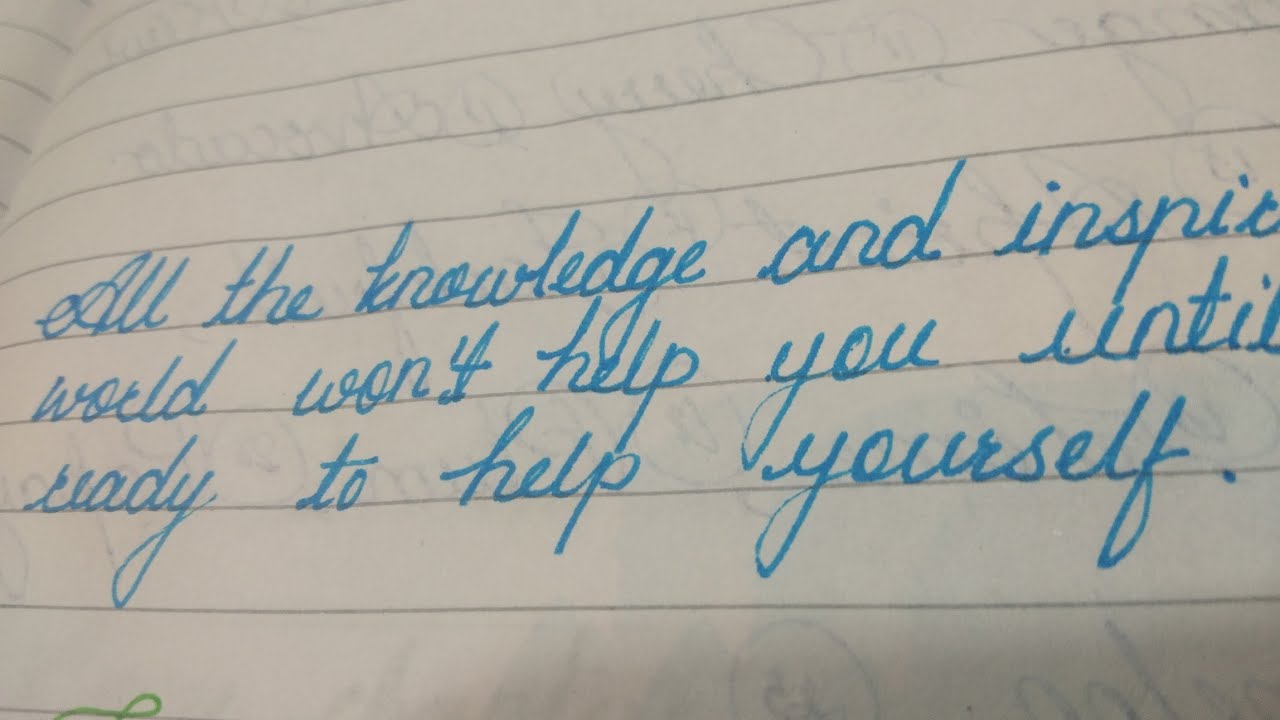 All the knowledge and inspir
world won't help you until
ready to help yourself.